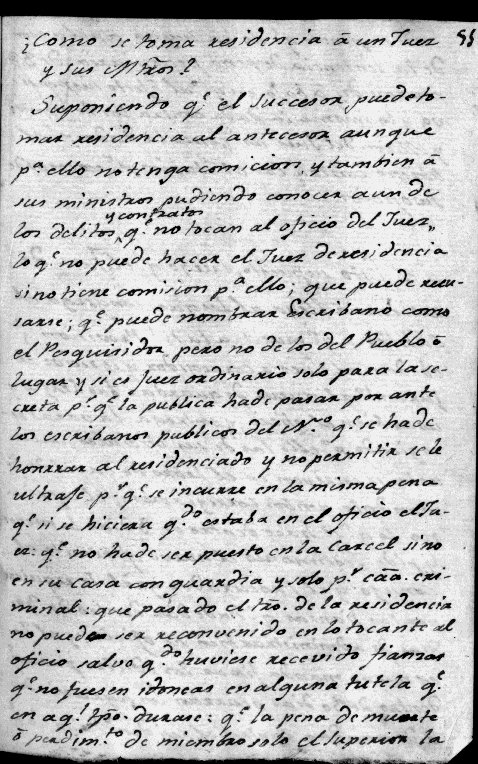 ¿Como se toma residencia â un Juez 55
y sus Mtros?
Suponiendo q.e el successor puede to-
mar residencia al antecesor aunque
p.a ello no tenga comicion, y tambien â
sus ministros pudiendo conocer aun de
y contratos
los delitos q.e no tocan al oficio del Juez,,
lo q.e no puede hacer el Juez de residencia
si no tiene comision p.a ello; que puede recu-
sarse; q.e puede nombrar Escribano como
el Pesquisidor pero no de los del Pueblo ô
lugar y si es Juez ordinario solo para la se-
creta p.r q.e la publica hade pasar por ante
los escribanos publicos del N.ro q.e se hade
honrrar al residenciado y no permitir se le
ultraje p.r q.e se incurre en la misma pena
q.e si se hiciera q.do estaba en el oficio el Ju-
ez: q.e no hade ser puesto en la Carcel sino
en su casa con guardia y solo p.r caâ. cri-
minal: que pasado el tro. de la residencia
no puede ser reconvenido en lo tocante al
oficio salvo q.do huviese recevido fianzas
q.e no fuesen idoneas en alguna tutela q.e
en aq.l tpo. durase: q.e la pena de muerte
ô perdim.to de miembro solo el superior la